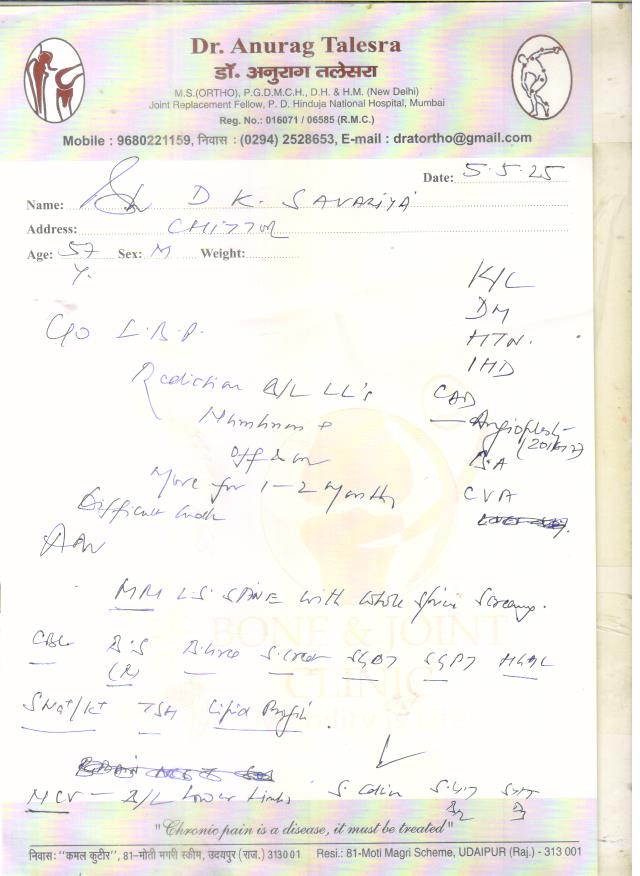 Dr. Anurag Talesra
डॉ. अनुराग तलेसरा
M.S.(ORTHO), P.G.D.M.C.H., D.H. & H.M. (New Delhi)
Joint Replacement Fellow, P. D. Hinduja National Hospital, Mumbai
Reg. No.: 016071 / 06585 (R.M.C.)
Mobile : 9680221159, निवास : (0294) 2528653, E-mail : dratortho@gmail.com
Date: 5.5.25
Name: D K. SAVARIYA
Address: CHITTOR
Age: 57 Y. Sex: M Weight:
K/C
DM
HTN.
IHD
C/O L.B.P.
Radiation B/L LL's
CAD
Numbness +
Angioplasty
off & on
B.A
More for 1-2 months
CVA
Difficult walk
Adv
MRI L.S. SPINE with whole spine screening.
CBC B.S (R) B.Urea S.creat SGOT SGPT
S Na+/K+ TSH Lipid Profile.
NCV - B/L Lower Limbs S. Calcium
BONE & JOINT
CLINIC
"Chronic pain is a disease, it must be treated"
निवास: "कमल कुटीर", 81-मोती मगरी स्कीम, उदयपुर (राज.) 313001 Resi.: 81-Moti Magri Scheme, UDAIPUR (Raj.) - 313 001